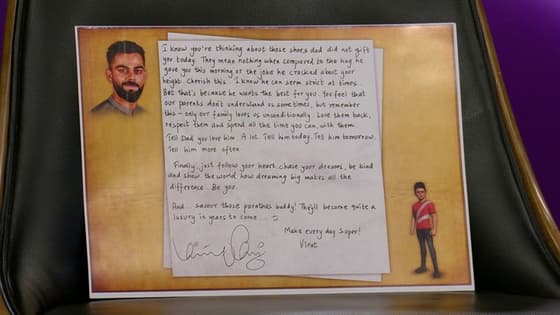 I know you're thinking about those shoes dad did not gift
you today. They mean nothing when compared to the hug he
gave you this morning or the joke he cracked about your
height. Cherish this. I know he can seem strict at times.
But that's because he wants the best for you. You feel that
our parents don't understand us sometimes, but remember
this - only our family loves us unconditionally. Love them back,
respect them and spend all the time you can, with them.
Tell Dad you love him. A lot. Tell him today. Tell him tomorrow.
Tell him more often.
Finally, just follow your heart, chase your dreams, be kind
and show the world how dreaming big makes all the
difference. Be you.
And... savour those paranthas buddy! They'll become quite a
luxury in years to come....
Make every day Super!
Virat